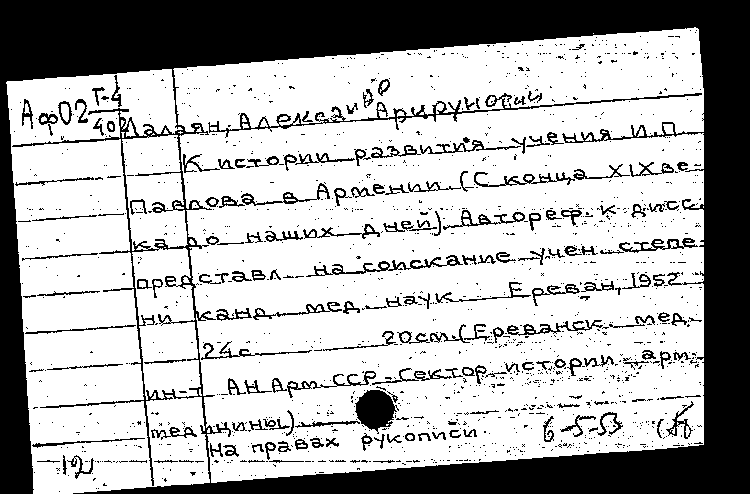 Аф02 Г-4/402
Лалаян, Александр Арцрунович
К истории развития учения И.П.
Павлова в Армении (С конца XIX ве-
ка до наших дней). Автореф. к дисс.
представл. на соискание учен. степе-
ни канд. мед. наук. Ереван, 1952
24с. 20см. (Ереванск. мед.
ин-т АН Арм. ССР. Сектор истории арм.
медицины).
На правах рукописи.
6-5-53
12